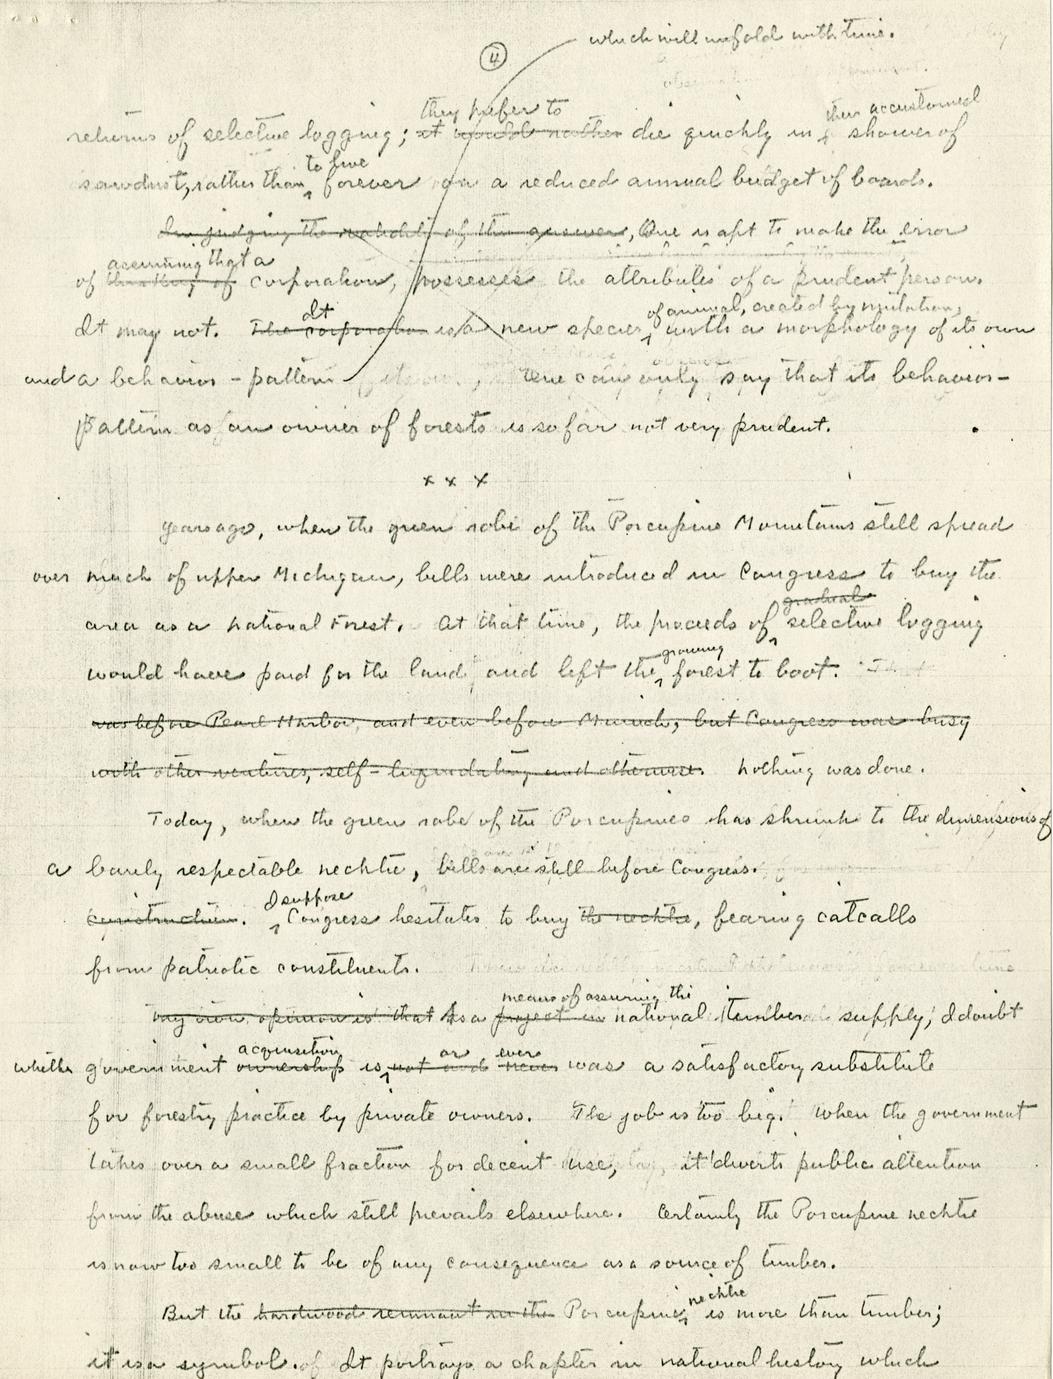 ④ which will unfold with time.
they prefer to
their accustomed
returns of selective logging; it would rather die quickly in shower of
to live
sawdust, rather than forever on a reduced annual budget of boards.
In judging the validity of this answer, One is apt to make the error
assuming that a
of thinking of corporation, possesses the attributes of a prudent person.
It of animal, created by mutation,
It may not. The corporation is a new species, with a morphology of its own
and a behavior-pattern One can only say that its behavior-
pattern as an owner of forests is so far not very prudent.
x x x
Years ago, when the green robe of the Porcupine Mountains still spread
over much of upper Michigan, bills were introduced in Congress to buy the
gradual
area as a National Forest. At that time, the proceeds of selective logging
growing
would have paid for the land, and left the forest to boot. That
was before Pearl Harbor, and even before Munich, but Congress was busy
with other ventures, self-liquidating and otherwise. Nothing was done.
Today, when the green robe of the Porcupines has shrunk to the dimensions of
a barely respectable necktie, bills are still before Congress.
I suppose
construction. Congress hesitates to buy the necktie, fearing catcalls
from patriotic constituents.
means of assuring the
My own opinion is that As a project in national timber supply, I doubt
acquisition or ever
whether government ownership is not and never was a satisfactory substitute
for forestry practice by private owners. The job is too big. When the government
takes over a small fraction for decent use, it diverts public attention
from the abuse which still prevails elsewhere. Certainly the Porcupine necktie
is now too small to be of any consequence as a source of timber.
necktie
But the hardwood remnant in the Porcupine is more than timber;
it is a symbol. of It portrays a chapter in national history which